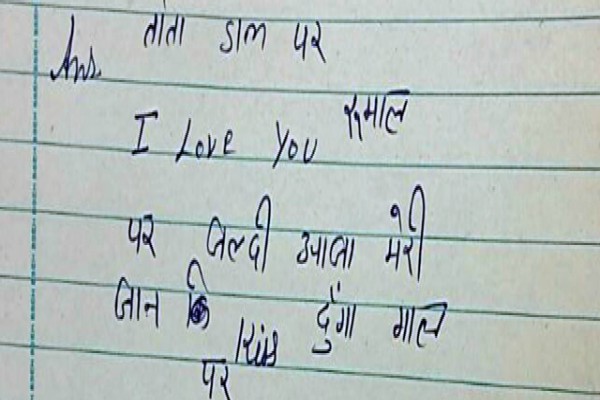 Ans तोता डाल पर
I Love You रुमाल
पर जल्दी आजा मेरी
जान Kiss दुँगा गाल
पर